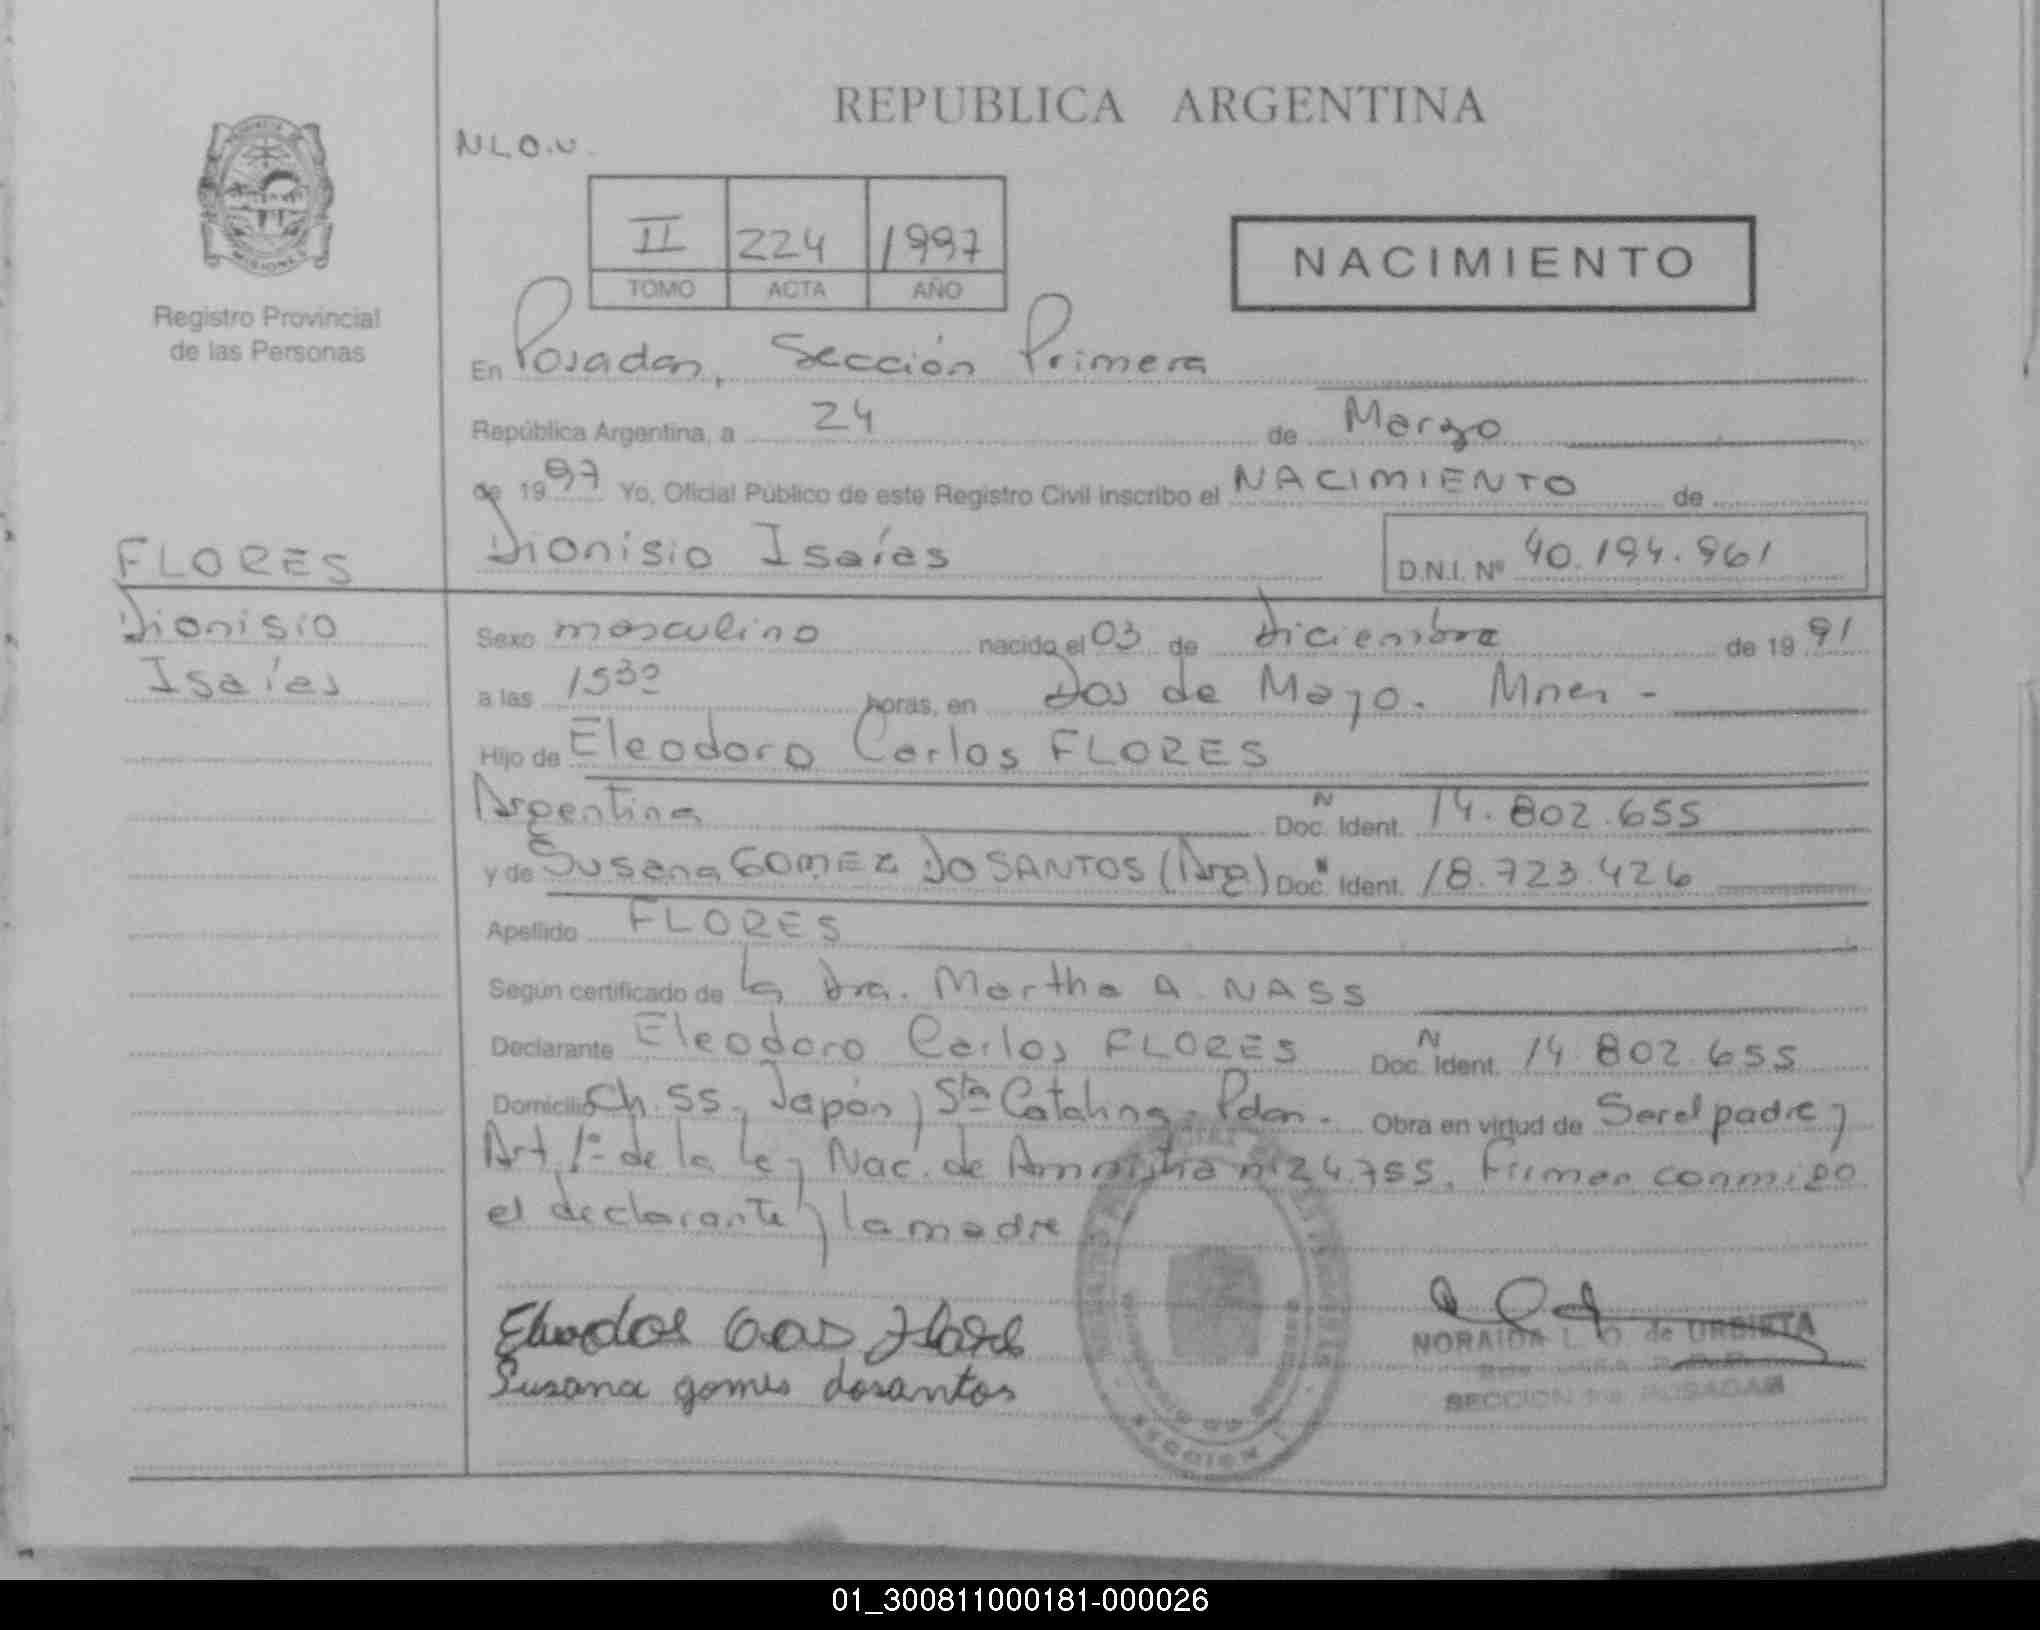 REPUBLICA ARGENTINA
N.L.O.U.
II 224 1997
TOMO ACTA AÑO
NACIMIENTO
MISIONES
Registro Provincial
de las Personas
En Posadas, Sección Primera
República Argentina, a 24 de Marzo
de 1997 Yo, Oficial Público de este Registro Civil inscribo el NACIMIENTO de
FLORES
Dionisio Isaías D.N.I. Nº 40.194.961
Dionisio
Isaías
Sexo masculino nacido el 03 de Diciembre de 1991
a las 1530 horas, en Dos de Mayo. Mnes -
Hijo de Eleodoro Carlos FLORES
Argentina N Doc. Ident. 14.802.655
y de Susana GOMEZ DO SANTOS (Arg) N Doc. Ident. 18.723.426
Apellido FLORES
Según certificado de la Dra. Martha A. NASS
Declarante Eleodoro Carlos FLORES N Doc. Ident. 14.802.655
Domicilio Ch. 55. Japón y Sta Catalina. Pdas. Obra en virtud de Ser el padre y
Art. 1º de la Ley Nac. de Amnistia nº 24.755. Firman conmigo
el declarante y la madre
Susana gomes dosantos
NORAIDA L. O. de URBIETA
SECCION 1ra POSADAS
SECCION 1
01_300811000181-000026